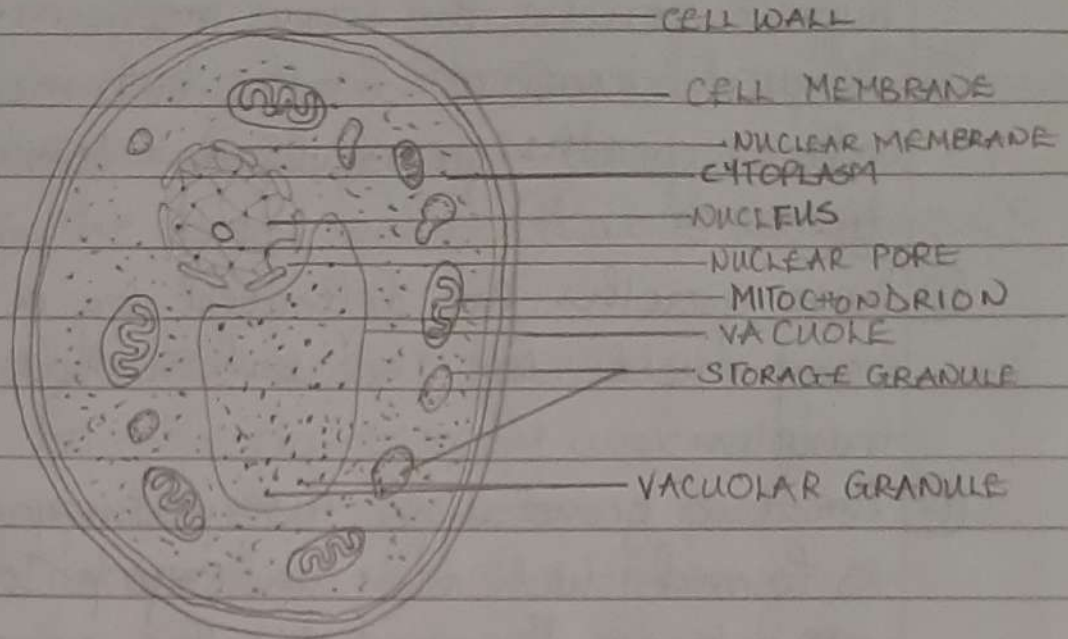 CELL WALL
CELL MEMBRANE
NUCLEAR MEMBRANE
CYTOPLASM
NUCLEUS
NUCLEAR PORE
MITOCHONDRION
VACUOLE
STORAGE GRANULE
VACUOLAR GRANULE